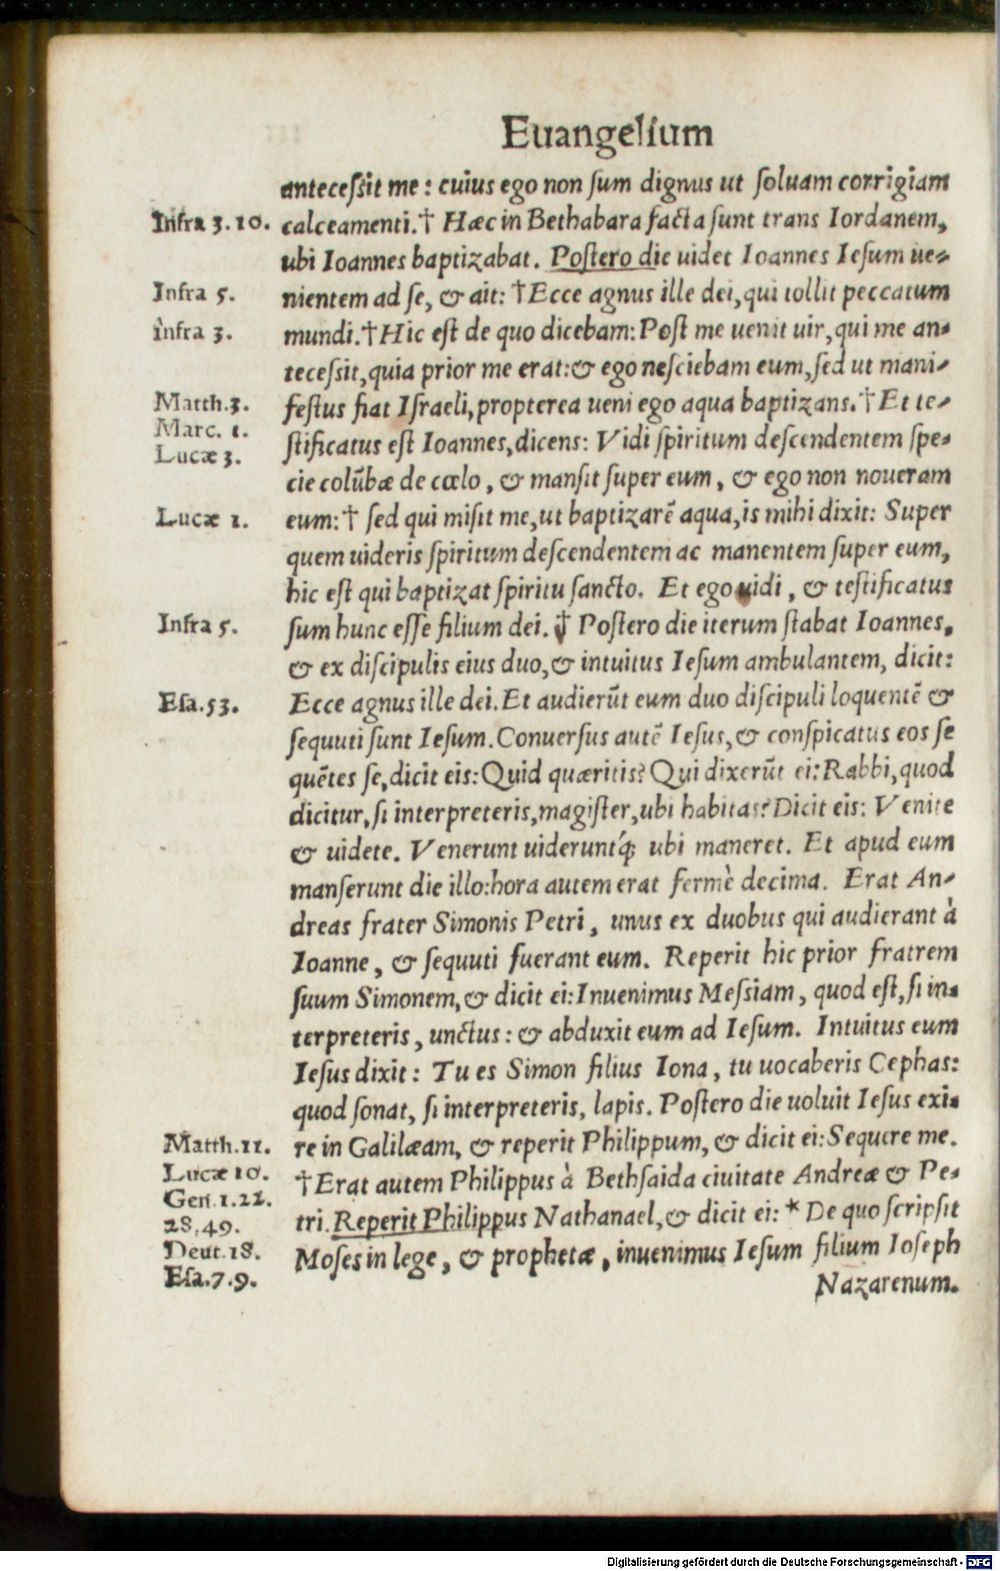 Euangelium
antecessit me: cuius ego non sum dignus ut soluam corrigiam
Infra 3.10. calceamenti.† Hæc in Bethabara facta sunt trans Iordanem,
ubi Ioannes baptizabat. Postero die uidet Ioannes Iesum ue-
Infra 5. nientem ad se, & ait: †Ecce agnus ille dei, qui tollit peccatum
infra 3. mundi.†Hic est de quo dicebam: Post me uenit uir, qui me an-
tecessit, quia prior me erat: & ego nesciebam eum, sed ut mani-
Matth.3. festus fiat Israeli, propterea ueni ego aqua baptizans.†Et te-
Marc. 1. stificatus est Ioannes, dicens: Vidi spiritum descendentem spe-
Lucæ 3. cie colūbæ de cœlo, & mansit super eum, & ego non noueram
Lucæ 1. eum:† sed qui misit me, ut baptizarē aqua, is mihi dixit: Super
quem uideris spiritum descendentem ac manentem super eum,
hic est qui baptizat spiritu sancto. Et ego uidi, & testificatus
Infra 5. sum hunc esse filium dei.† Postero die iterum stabat Ioannes,
& ex discipulis eius duo, & intuitus Iesum ambulantem, dicit:
Esa.53. Ecce agnus ille dei. Et audierūt eum duo discipuli loquentē &
sequuti sunt Iesum. Conuersus autē Iesus, & conspicatus eos se
quētes se, dicit eis: Quid quæritis? Qui dixerūt ei: Rabbi, quod
dicitur, si interpreteris, magister, ubi habitas? Dicit eis: Venite
& uidete. Venerunt uideruntq́; ubi maneret. Et apud eum
manserunt die illo: hora autem erat fermè decima. Erat An-
dreas frater Simonis Petri, unus ex duobus qui audierant à
Ioanne, & sequuti fuerant eum. Reperit hic prior fratrem
suum Simonem, & dicit ei: Inuenimus Messiam, quod est, si in-
terpreteris, unctus: & abduxit eum ad Iesum. Intuitus eum
Iesus dixit: Tu es Simon filius Iona, tu uocaberis Cephas:
quod sonat, si interpreteris, lapis. Postero die uoluit Iesus exi-
Matth.11. re in Galilæam, & reperit Philippum, & dicit ei: Sequere me.
Lucæ 10. †Erat autem Philippus à Bethsaida ciuitate Andreæ & Pe-
Gen.1.22.
28.49. tri. Reperit Philippus Nathanael, & dicit ei: *De quo scripsit
Deut.18. Moses in lege, & prophetæ, inuenimus Iesum filium Ioseph
Esa.7.9. Nazarenum.
Digitalisierung gefördert durch die Deutsche Forschungsgemeinschaft - DFG